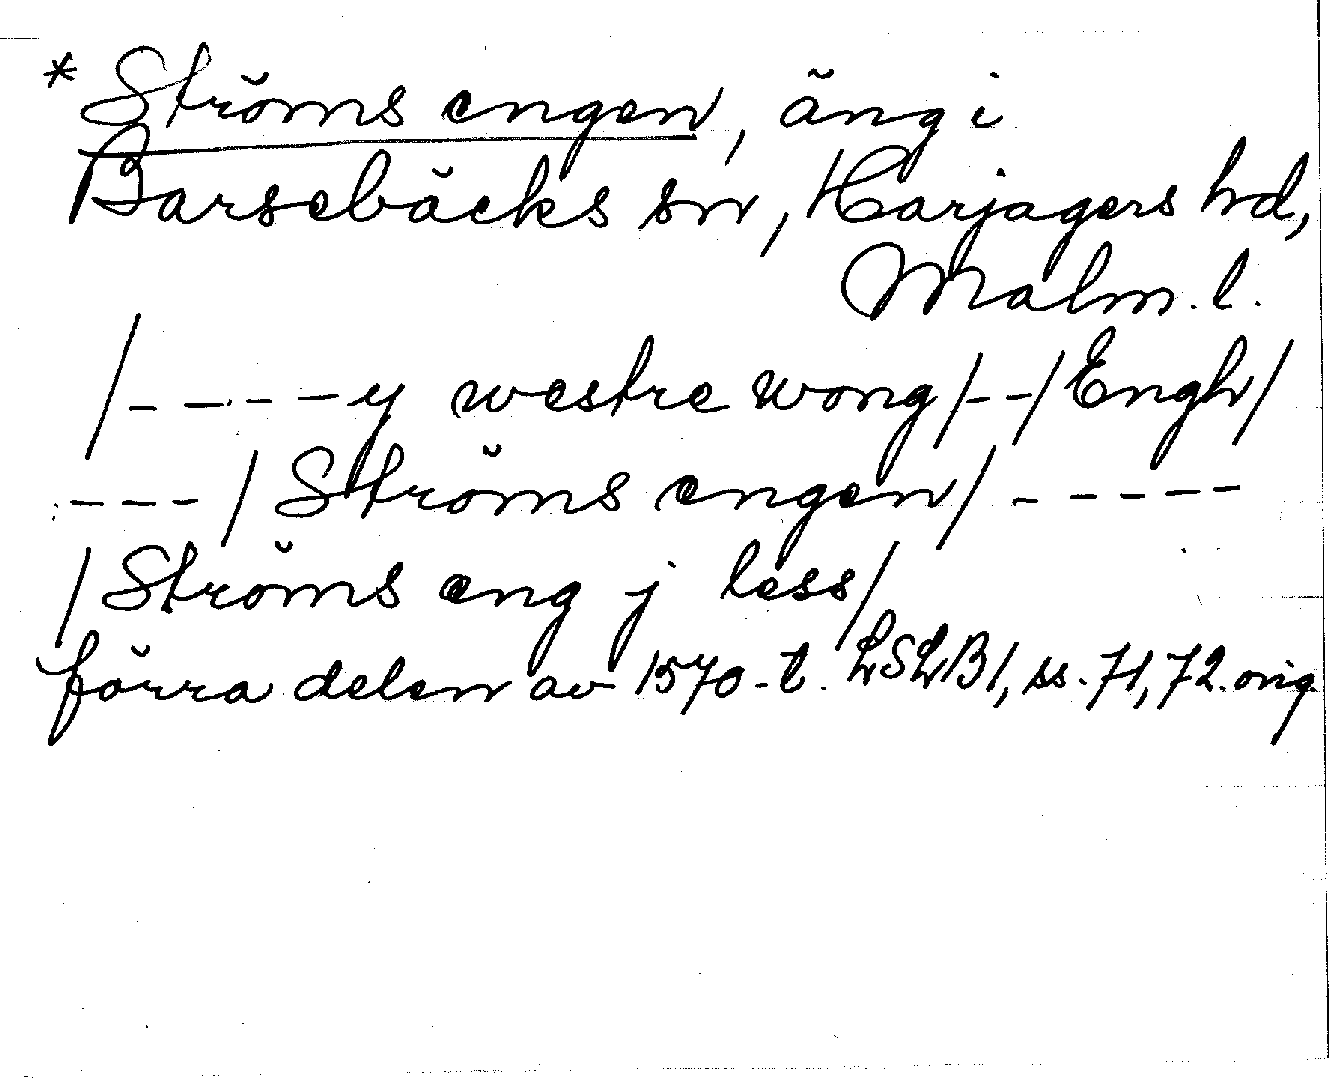 * Ströms engen, äng i
Barsebäcks sn, Harjagers hd,
Malm. l.
/-----y westre wong/--/Engh/
---/Ströms engen/-----
/Ströms eng j less/
förra delen av 1570-t. LSLB1, ss. 71, 72. orig.